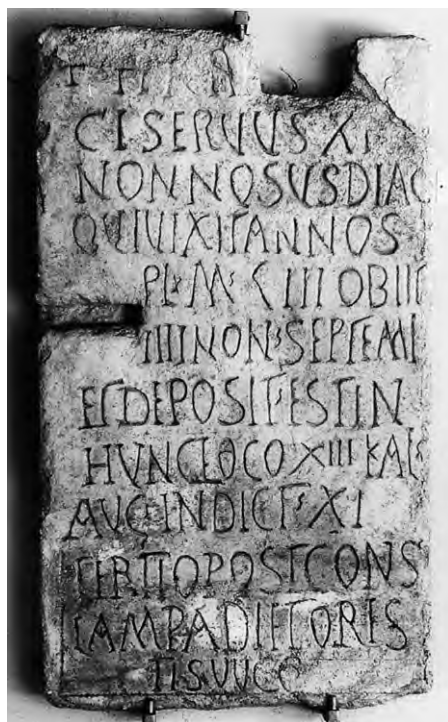 CI SERVUS XI
NONNOSUS DIAC
QUI VIXIT ANNOS
PL M CIII OBIIT
IIII NON SEPTEM
ET DEPOSIT EST IN
HUNC LOCO XIII KAL
AUG INDICT XI
TERTIO POST CONS
LAMPADI ET ORES
TIS VV CC